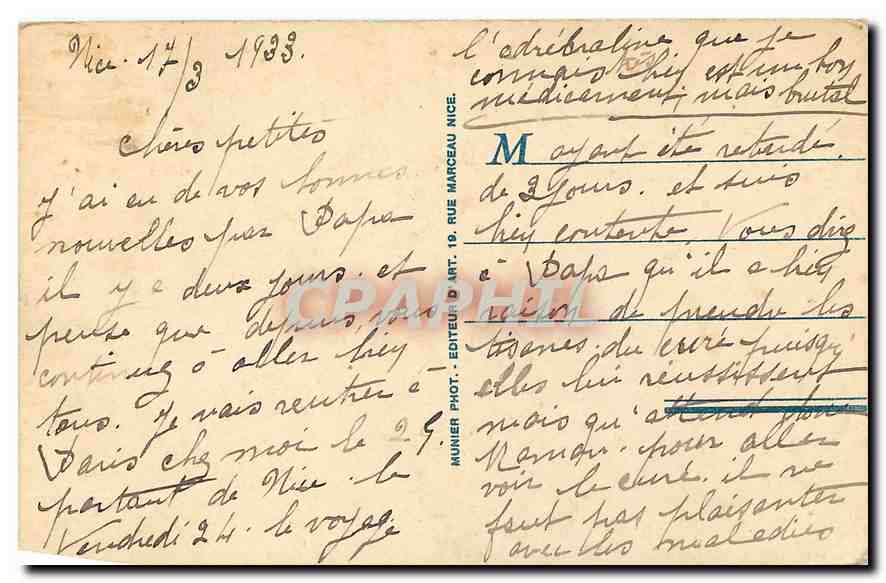 Nice. 17/3 1933.
Chères petites
J'ai eu de vos bonnes
nouvelles par Papa
il y a deux jours. et
pense que depuis, vous
continuez à aller bien
tous. Je vais rentrer à
Paris chez moi le 25.
partant de Nice. le
Vendredi 24. le voyage
MUNIER PHOT. - EDITEUR D'ART. 19. RUE MARCEAU NICE.
l'adrénaline que je
connais bien est un bon
médicament, mais brutal
M ayant été retardé.
de 2 jours. et suis
bien contente. Vous direz
à Papa qu'il a bien
raison de prendre les
tisanes du curé puisqu'
elles lui réussissent
mais qu'attend donc
Maman. pour aller
voir le curé. il ne
faut pas plaisanter
avec les maladies
CPAPHIL